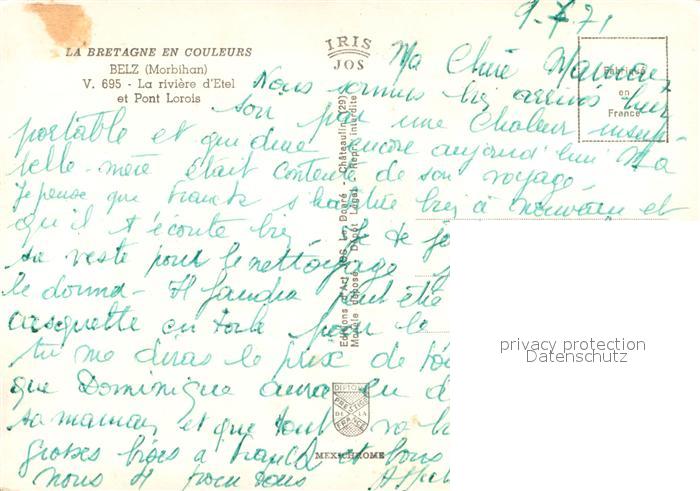 LA BRETAGNE EN COULEURS
BELZ (Morbihan)
V. 695 - La rivière d'Etel
et Pont Lorois
IRIS
JOS
Fabriqué
en
France
Editions d'Art JOS Le Doaré - Châteaulin (29)
Modèle déposé - Dépôt Légal - Repr. interdite
9.7.71
Ma Chère
Nous sommes bien arrivés hier
soir par une chaleur insup-
portable et qui dure encore aujourd'hui Ma
belle mère était contente de son voyage.
Je pense que Franck s'habitue bien à nouveau et
qu'il t'écoute bien
sa veste pour le nettoyage
le donna - Il faudra peut être
casquette en toile pour le
tu me diras le prix de
que Dominique aura eu
sa maman, et que tout va
grosses bises à Franck et tous
nous et pour tous
DIPLOME
PRESTIGE
DE LA
FRANCE
MEXICHROME
privacy protection
Datenschutz